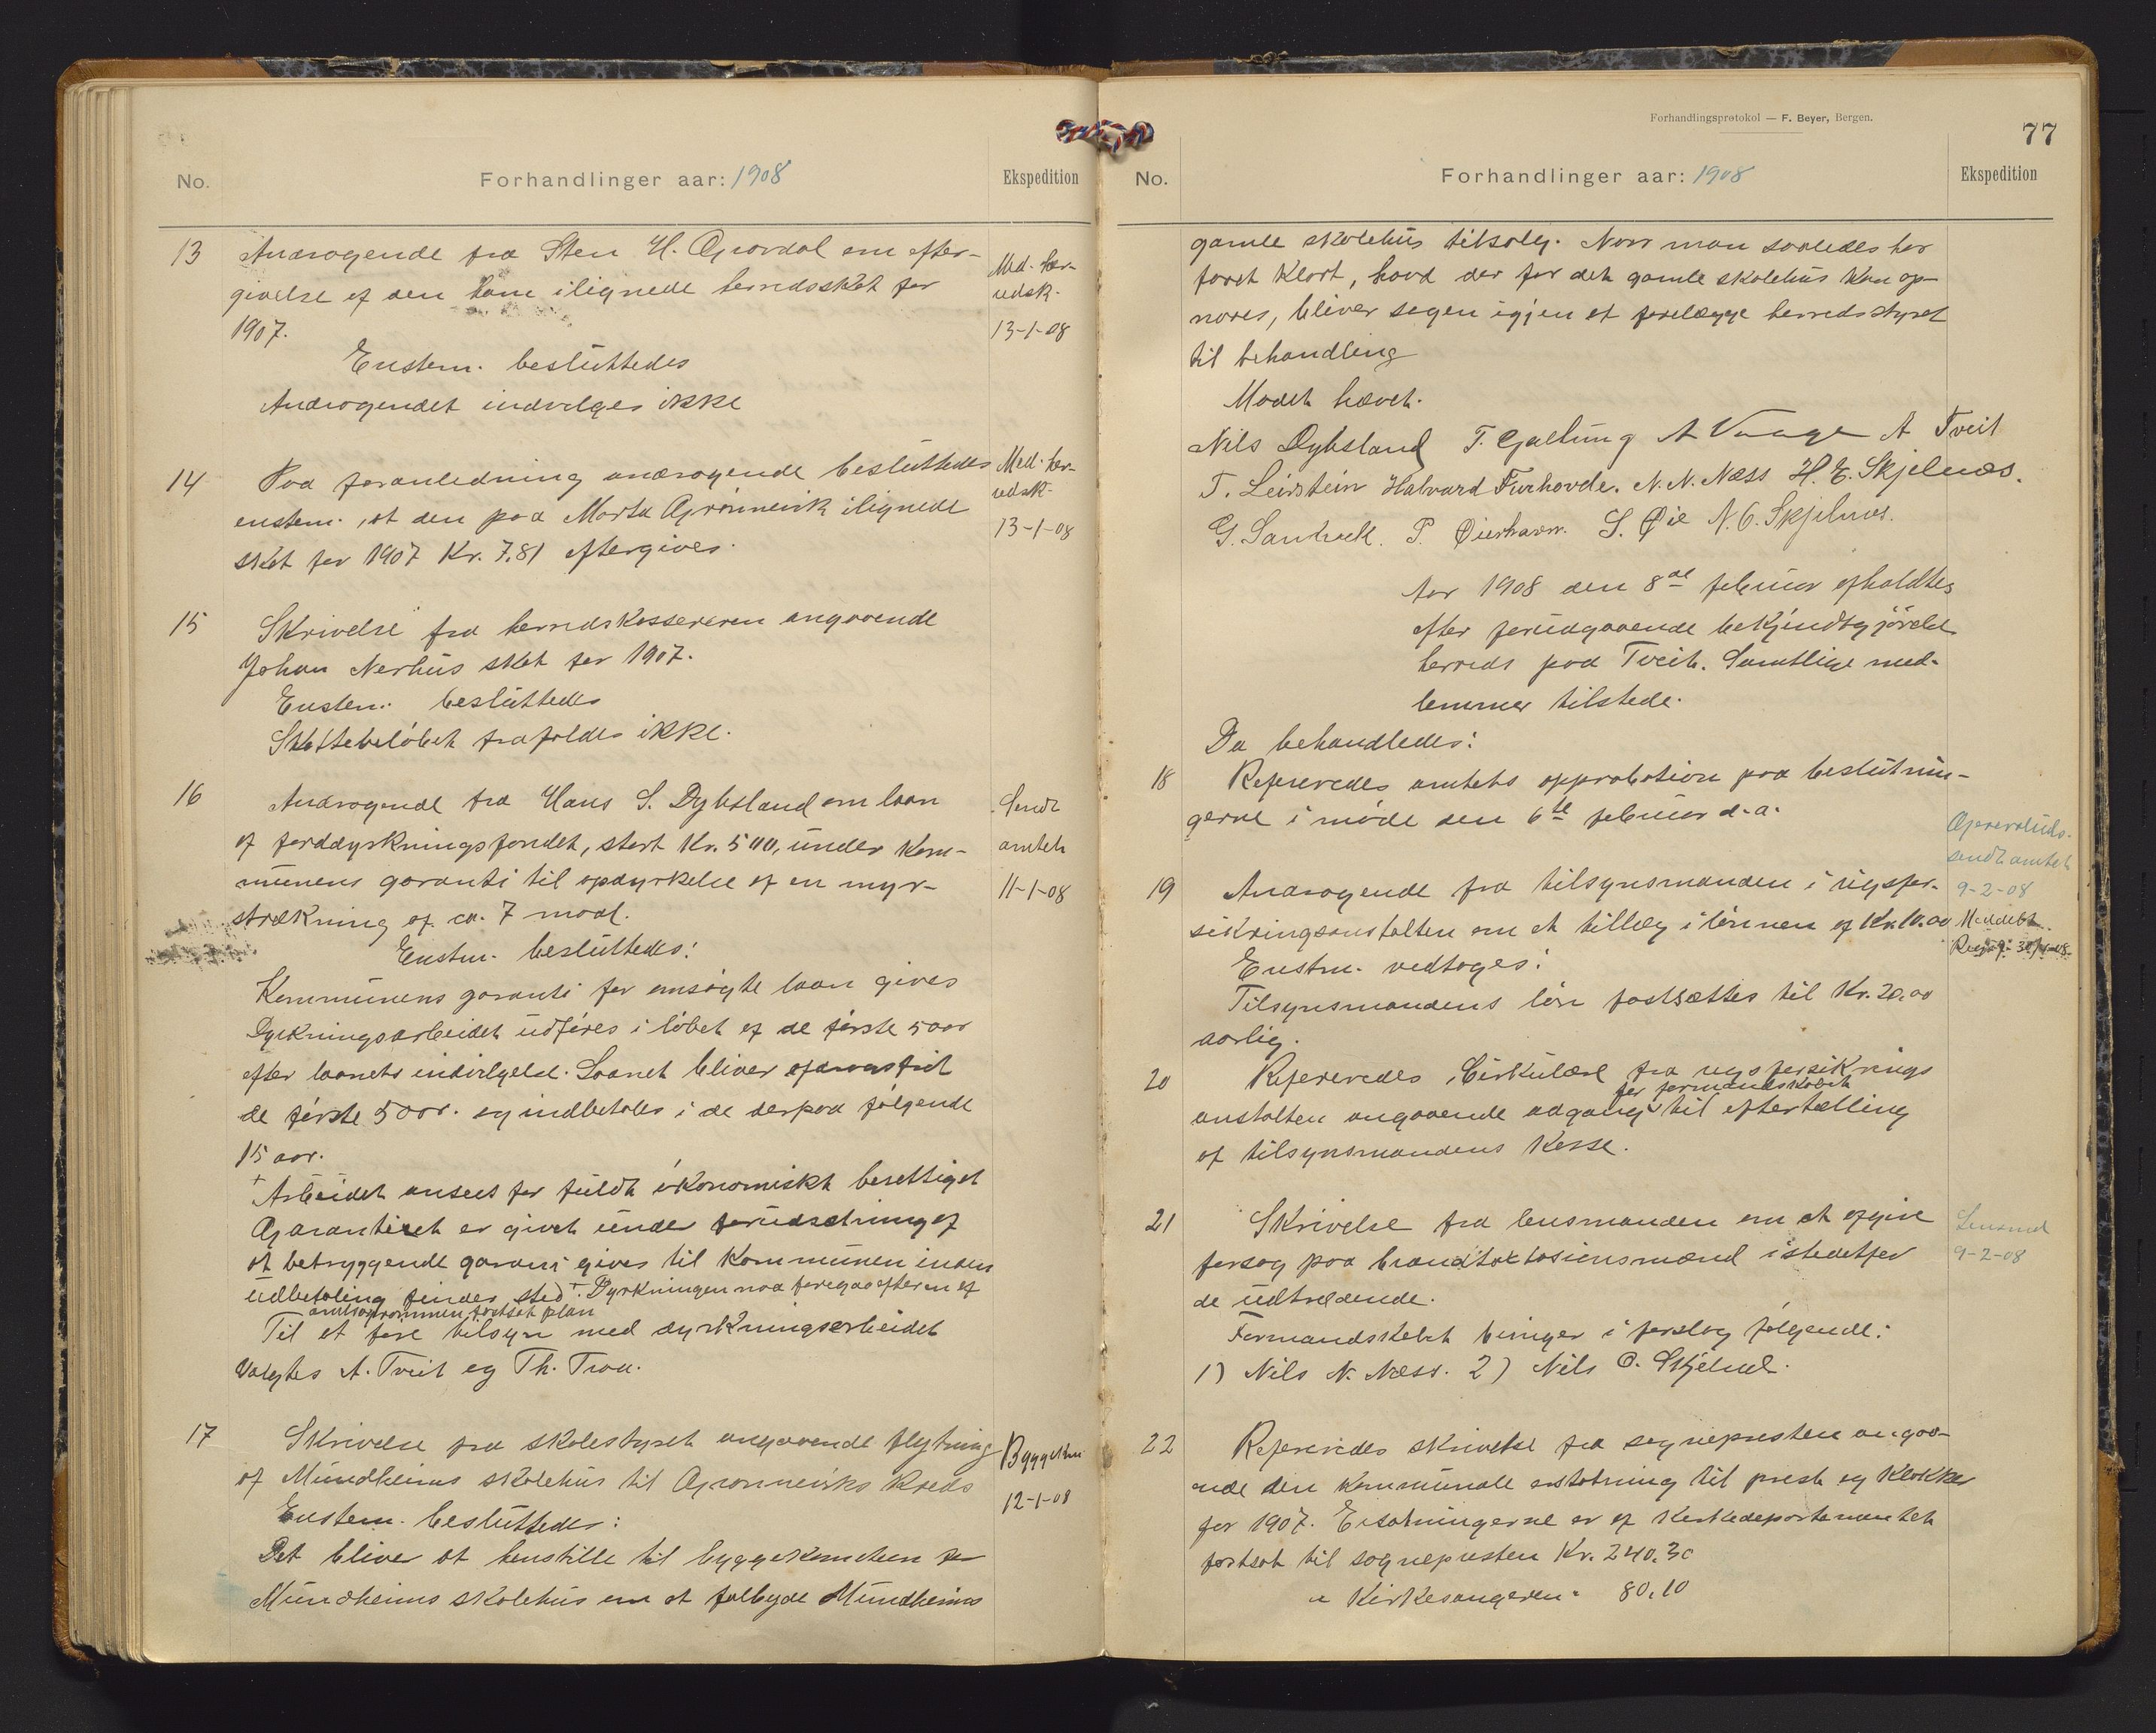 No.
Forhandlinger aar: 1908
Ekspedition
13 Andragende fra Sten H. Gjerdal om efter-
givelse af den ham ilignede herredsskat for
1907.
Med. her-
redsk.
13-1-08
Enstem. besluttedes
Andragendet indvilges ikke
14 Paa foranledning andragende besluttedes
enstem., at den paa Marta Grønnevik ilignede
skat for 1907 Kr. 7,81 eftergives.
Med. her-
redsk.
13-1-08
15 Skrivelse fra herredskassereren angaaende
Johan Nerhus skat for 1907.
Enstem. besluttedes
Skattebeløbet frafaldes ikke.
16 Andragende fra Hans S. Dybsland om laan
af jorddyrkningsfondet, stort Kr. 500, under kom-
munens garanti til opdyrkelse af en myr-
strækning af ca. 7 maal.
Sendt
amtet
11-1-08
Enstm. besluttedes:
Kommunens garanti for ansøgte laan gives
Dyrkningsarbeidet udføres i løbet af de første 5 aar
efter laanets indvilgelse. Laanet bliver afdragsfrit
de første 5 aar. og indbetales i de derpaa følgende
15 aar.
+ Arbeidet ansees for fuldt økonomiskt berettiget
Garantiet er givet under forudsætning af
at betryggende garanti gives til kommunen inden
udbetaling finder sted + Dyrkningen maa foregaa efter en af
amtsagronomen fastsat plan
Til at føre tilsyn med dyrkningsarbeidet
valgtes A. Tveit og Th. Traa.
17 Skrivelse fra skolestyret angaaende flytning
af Mundheims skolehus til Grønneviks kreds
Byggekom
12-1-08
Enstem. besluttedes:
Det bliver at henstille til byggekomiteen for
Mundheims skolehus om at falbyde Mundheims
Forhandlingsprotokol — F. Beyer, Bergen.
77
No.
Forhandlinger aar: 1908
Ekspedition
gamle skolehus tilsalg. Naar man saaledes har
faaet klart, hvad der for det gamle skolehus kan op-
naaes, bliver sagen igjen at forelægge herredsstyret
til behandling
Mødet hævet.
Nils Dybsland T. Gjeltung A Vaage A Tveit
T. Leirstein Halvard Furhovde. N. N. Næss H. E. Skjelnæs.
G. Sandvek. P. Øierhavn. S. Øie N. O. Skjelnæs.
Aar 1908 den 8de februar afholdtes
efter forudgaaende bekjendtgjørelse
herreds paa Tveit. Samtlige med-
lemmer tilstede.
Da behandledes:
18 Refereredes amtets approbation paa beslutnin-
gerne i møde den 6te februar d. a.
19 Andragende fra tilsynsmanden i rigsfor-
sikringsanstalten om et tillæg i lønnen af Kr. 10.00
sendt amtet
9-2-08
Meddelt
Enstm. vedtoges:
Tilsynsmandens løn fastsættes til Kr. 20.00
aarlig.
20 Refereredes, Cirkulære fra rigsforsikrings
for formandskabet
anstalten angaaende adgang til eftertælling
af tilsynsmandens kasse.
21 Skrivelse fra lensmanden om at afgive
forsag paa brandtakstasionsmænd istedetfor
de udtrædende.
Lensmd
9-2-08
Formandskabet bringer i forslag følgende:
1) Nils N. Næss. 2) Nils O. Skjelnæ.
22 Refereredes skrivelse fra sognepresten angaa-
ende den kommunale erstatning til prest og klokker
for 1907. Erstatningerne er af Kirkedepartementet
fastsat til sognepresten Kr. 240.30
" Kirkesangeren " 80.10